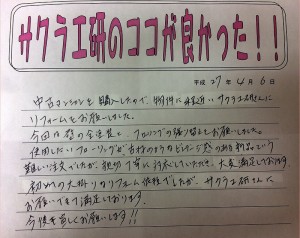 サクラ工研のココが良かった!!
平成 27年 4月 6日
中古マンションを購入したので、物件に程近いサクラ工研さんに
リフォームをお願いしました。
今回は壁の全塗装と、フローリングの張り替えをお願いしました。
使用したいフローリングが古材のようなビンテージ感のある新品という
難しい注文でしたが、親切丁寧に対応していただき、大変満足しております。
初めての大掛りなリフォーム依頼でしたが、サクラ工研さんに
お願いできて満足しております。
今後も宜しくお願いします!!